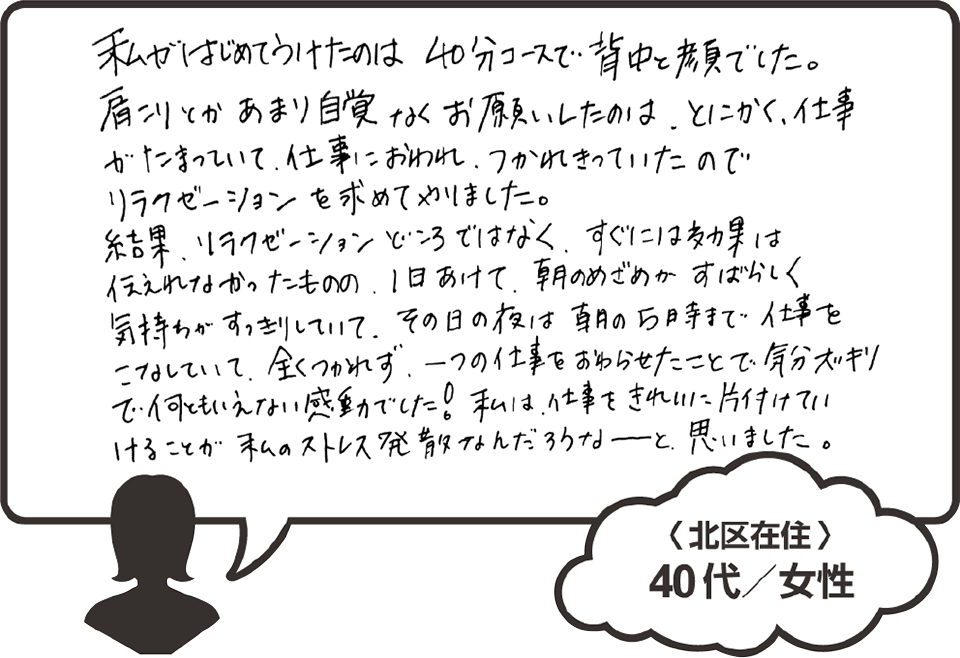 私がはじめてうけたのは 40分コースで 背中と顔でした。
肩こりとか あまり自覚 なく お願いしたのは、とにかく、仕事
がたまっていて、仕事におわれ、つかれきっていたので
リラクゼーション を求めてやりました。
結果、リラクゼーション どころではなく、すぐには効果は
伝えれなかったものの、1日あけて、朝のめざめが すばらしく
気持ちが すっきりしていて、その日の夜は 朝の5時まで 仕事を
こなしていて、全くつかれず、一つの仕事をおわらせたことで気分スッキリ
で何ともいえない感動でした! 私は、仕事をきれいに片付けてい
けることが 私のストレス発散なんだろうなーと、思いました。
〈北区在住〉
40代/女性